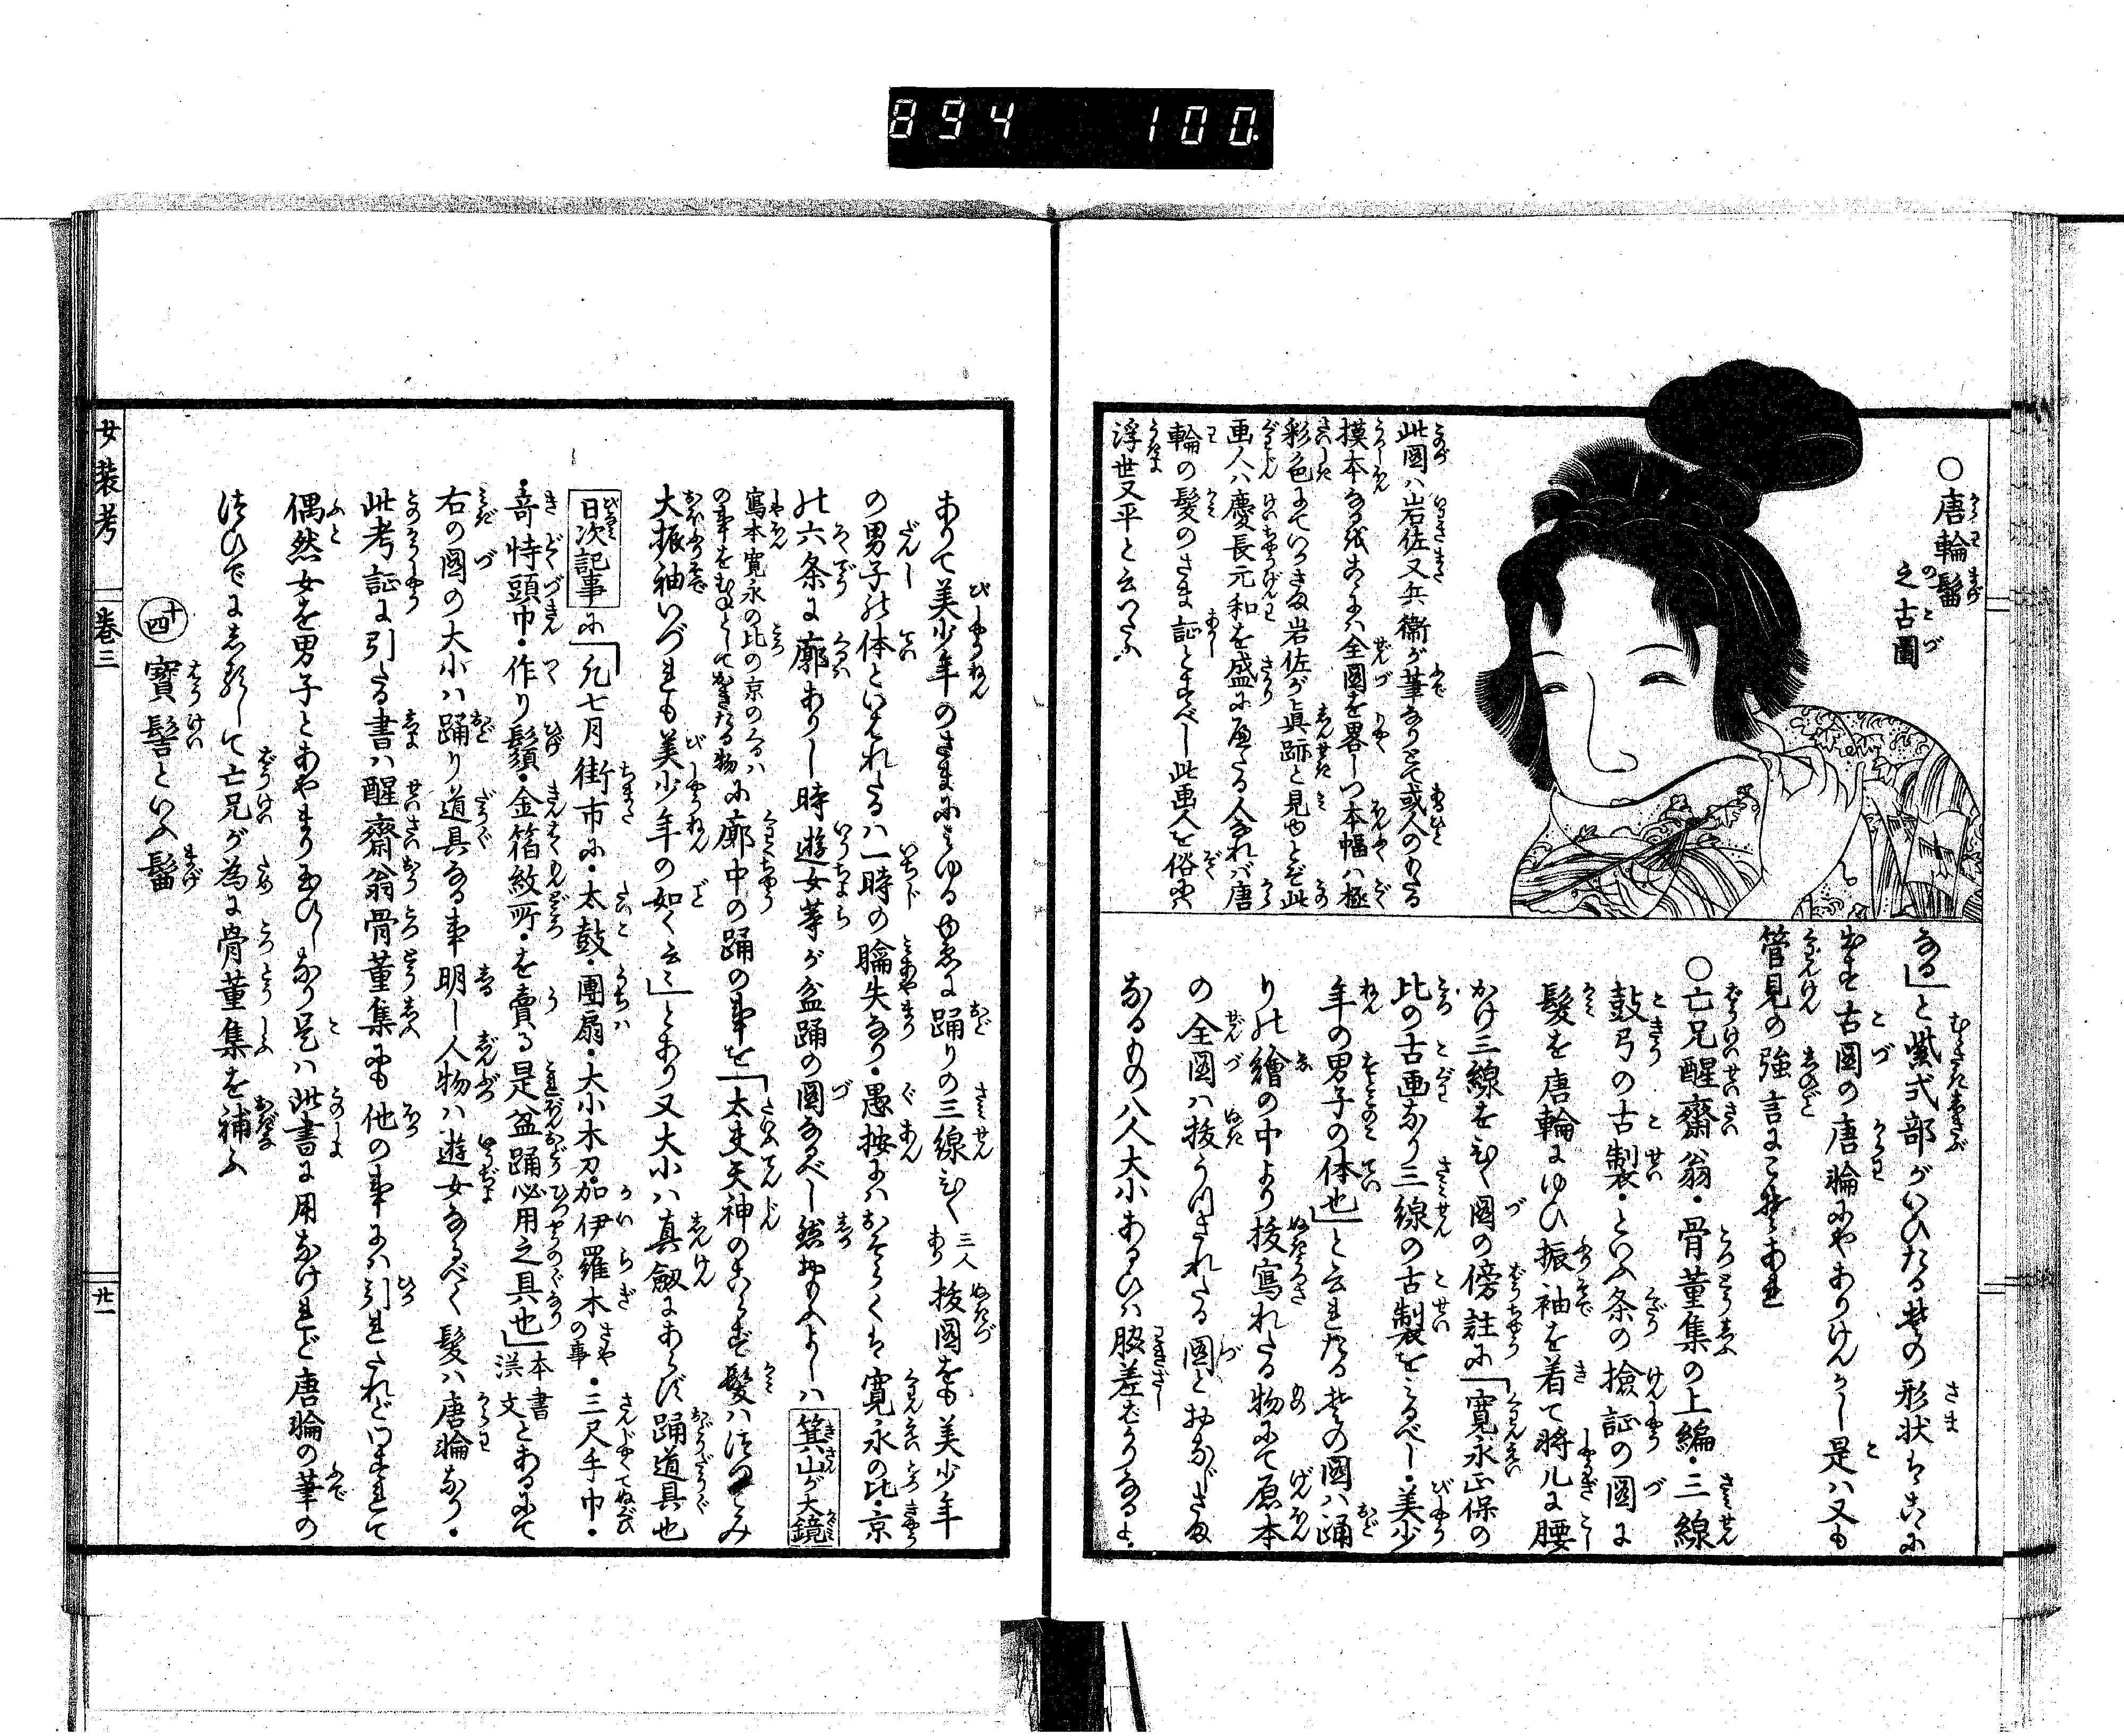 894 100
○唐輪髷
之古圖
此圖ハ岩佐又兵衞が筆なりとて或人のもたる
摸本なるを
全圖を畧しつ本幅ハ極
彩色にていつきな岩佐が真跡と見ゆとぞ此
画人ハ慶長元和を盛に歴たる人なれバ唐
輪の髮のさま証とすべし此画人を俗に
浮世又平と云つたふ
なる」と紫式部がいひたる其の形状も
古圖の唐輪にやありけんかし是ハ又も
管見の強言にこそあれ
○亡兄醒齋翁・骨董集の上編・三線
鼓弓の古製・といふ条の撿証の圖に
髮を唐輪にゆひ振袖を着て将几に腰
かけ三線をひく圖の傍註に「寛永正保の
比の古画なり三線の古製をみるべし・美少
年の男子の体也」と云れたる其の圖ハ踊
りの繪の中より抜寫れたる物にて原本
の全圖ハ抜うつされたる圖とおなじさま
なるもの八人大小あるひハ脇差ばかりなるよ
ありて美少年のさまにみゆるゆゑに踊りの三線ひく三人あり抜圖をも美少年
の男子の体といはれたるハ一時の腀失なり・愚按にハおそらくは寛永の比・京
の六条に廓ありし時遊女等が盆踊の圖なるべし然おもふよしハ箕山が大鏡
寫本寛永の比の京のくるハ
の事をむねとしてかきたる物に廓中の踊の事を「太夫天神のこらず髮ハ
大振袖いづれも美少年の如く云〻」とあり又大小ハ真劔にあらず踊道具也
日次記事に「凡七月街市に・太鼓・團扇・大小木刀・加伊羅木さやの事・三尺手巾・
・竒特頭巾・作り鬚・金箔紋所・を賣る是盆踊必用之具也」本書漢文とあるにて
右の圖の大小ハ踊り道具なる事明し人物ハ遊女なるべく髮ハ唐輪なり・
此考証に引たる書ハ醒齋翁骨董集にも他の事にハ引れたれどいまれて
偶然女を男子とあやまり玉ひしなり是ハ此書に用なけれど唐輪の筆の
ついでにしるして亡兄が為に骨董集を補ふ
十四 寳髻といふ髷
女装考 巻三 廿一